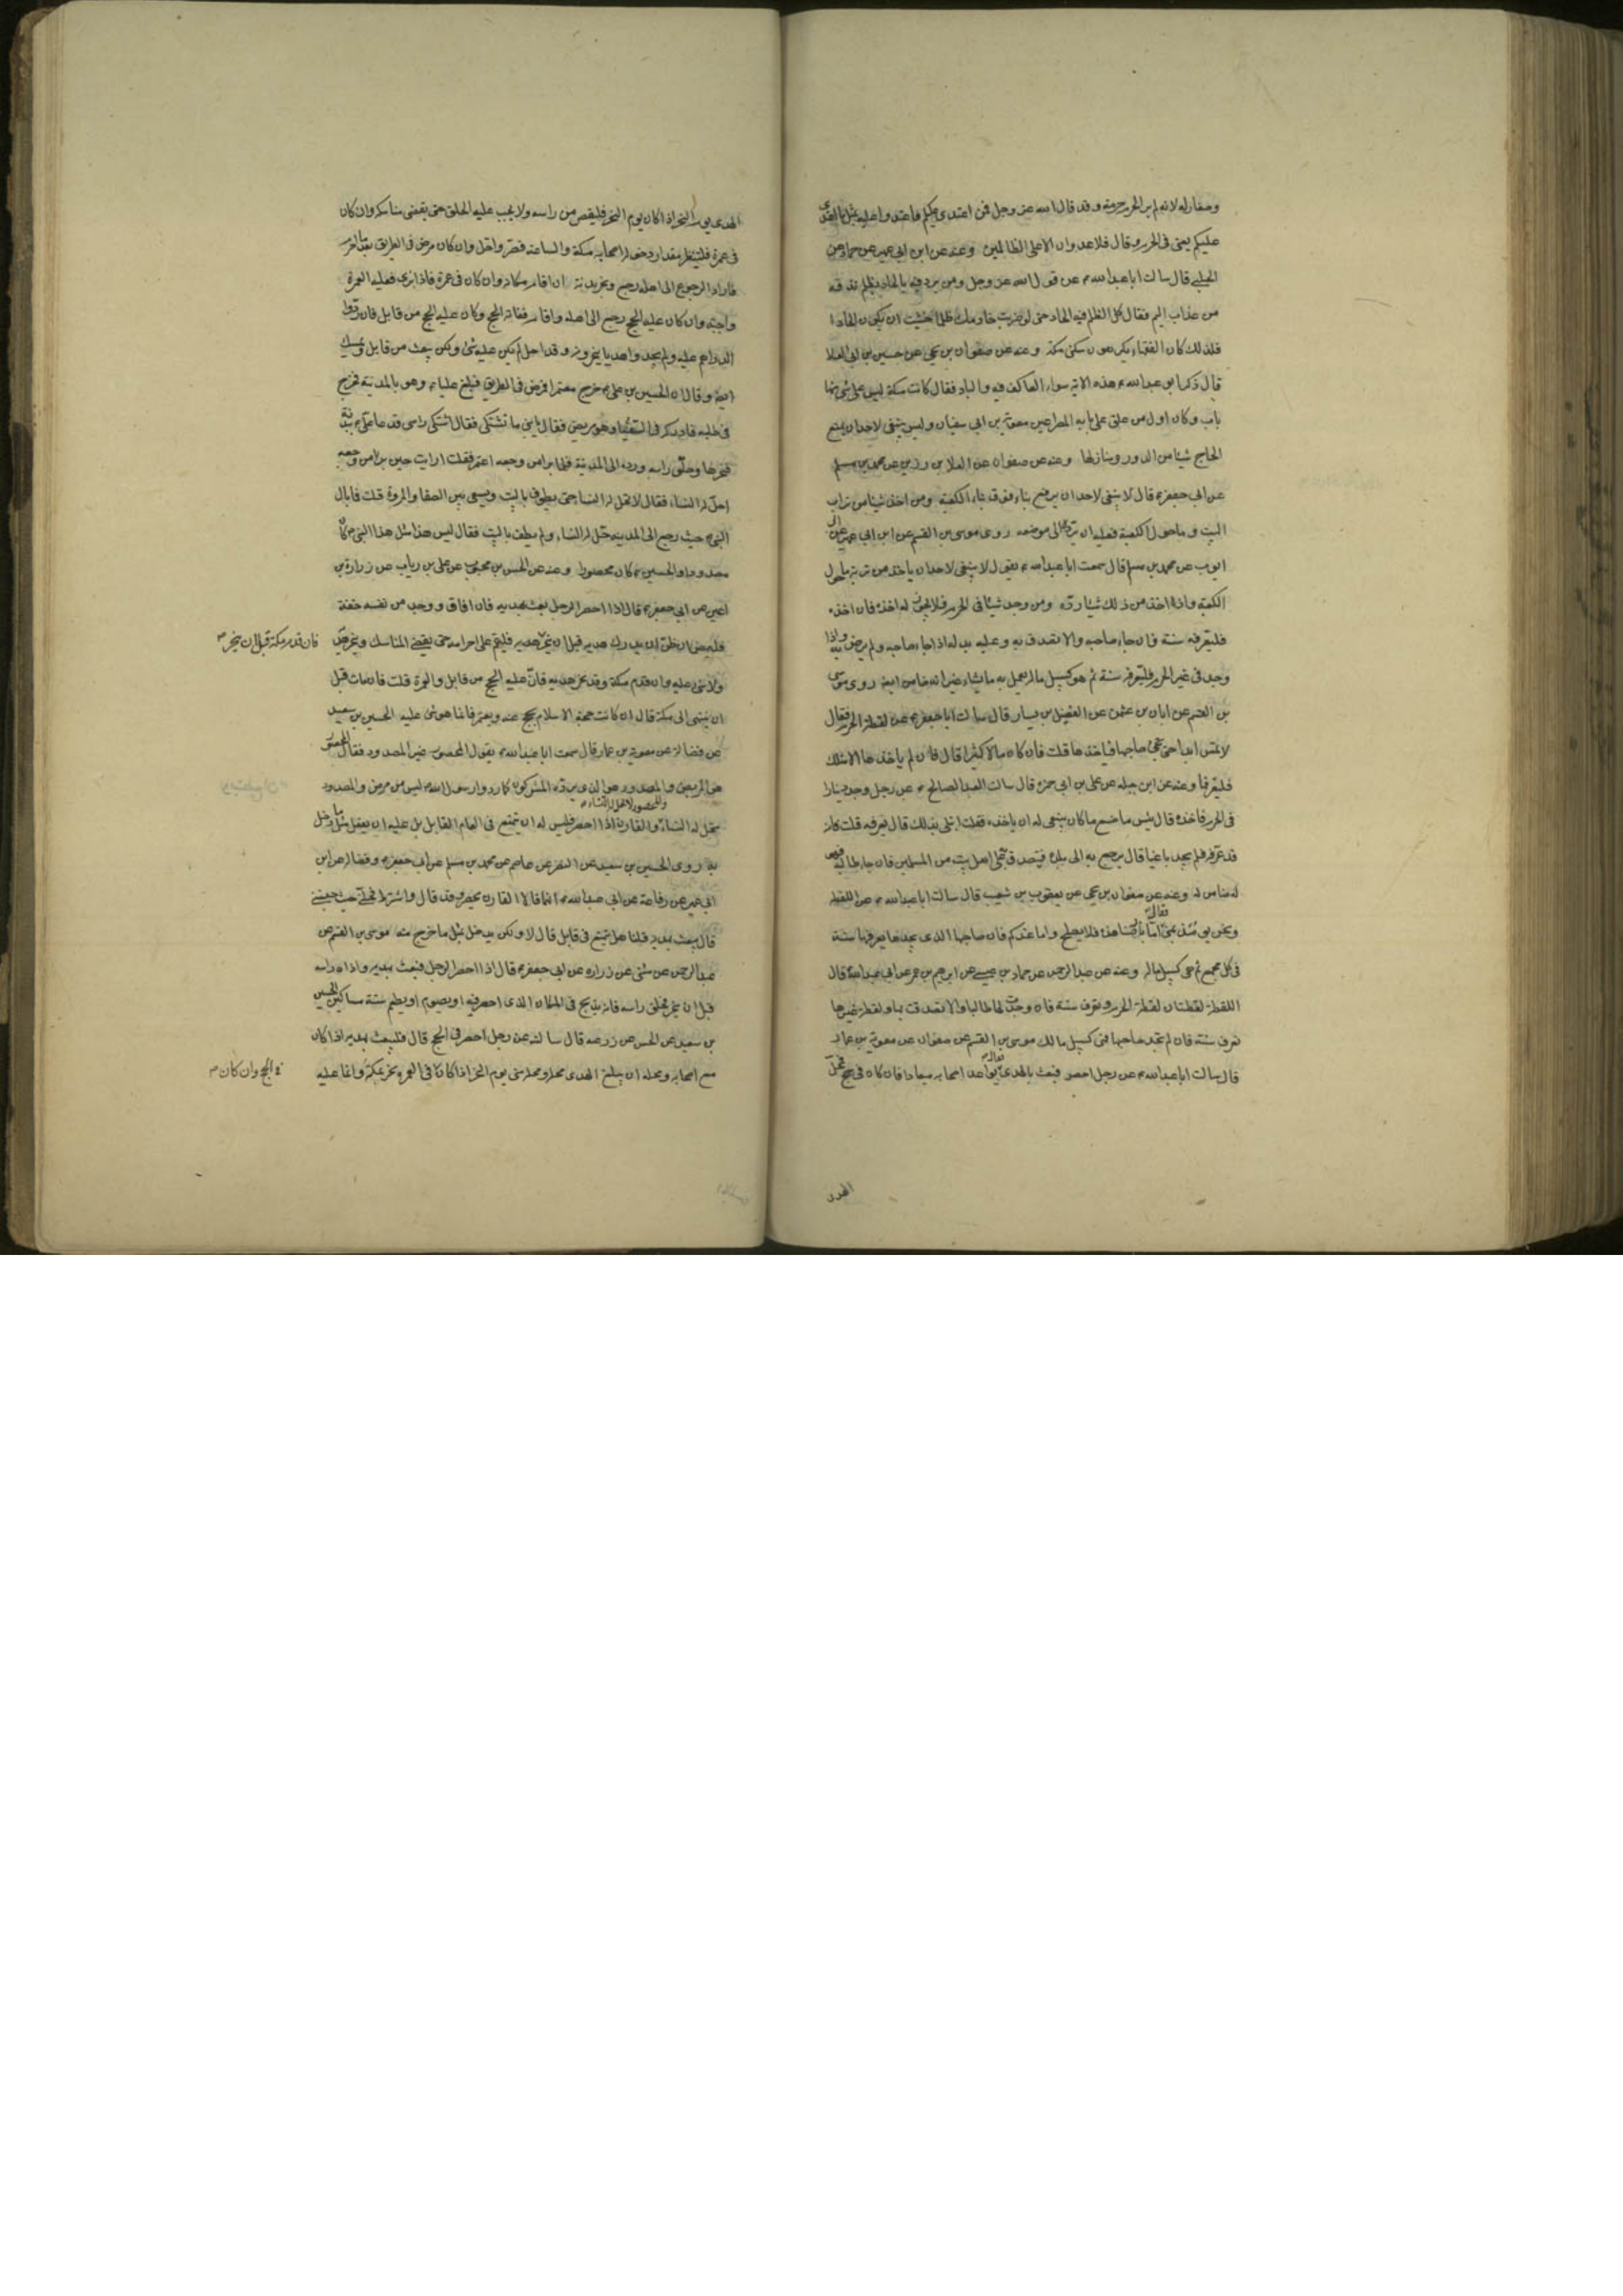 وصغار له لانه لم ير للحرم حرمة وقد قال الله عز وجل فمن اعتدى عليكم فاعتدوا عليه بمثل ما اعتدى
عليكم يعنى فى الحرم وقال فلا عدوان الا على الظالمين وعنه عن ابن ابى عمير عن حماد عن
الحلبى قال سالت ابا عبد الله ع عن قول الله عز وجل ومن يرد فيه بالحاد بظلم نذقه
من عذاب اليم فقال كل الظلم فيه الحاد حتى لو ضربت خادمك ظلما خشيت ان يكون الحادا
فلذلك كان الفقهاء يكرهون سكنى مكة وعنه عن صفوان بن يحيى عن حسين بن ابى العلا
قال ذكر ابو عبد الله ع هذه الاية سواء العاكف فيه والباد فقال كانت مكة ليس على شئ منها
باب وكان اول من علق على بابه المصراعين معوية بن ابى سفيان وليس ينبغى لاحد ان يمنع
الحاج شيئا من الدور ومنازلها وعنه عن صفوان عن العلا بن رزين عن محمد بن مسلم
عن ابى جعفر ع قال لا ينبغى لاحد ان يرفع بناء فوق بناء الكعبة ومن اخذ شيئا من تراب
البيت وما حول الكعبة فعليه ان يرده الى موضعه روى موسى بن القسم عن ابن ابى عمير عن ابى
ايوب عن محمد بن مسلم قال سمعت ابا عبد الله ع يقول لا ينبغى لاحد ان ياخذ من تربة ما حول
الكعبة واذا اخذ من ذلك شيئا رده ومن وجد شيئا فى الحرم فلا يجوز له اخذه فان اخذه
فليعرفه سنة فان جاء صاحبه والا تصدق به وعليه بدله اذا جاء صاحبه ولم يرض به واذا
وجد فى غير الحرم فليعرفه سنة ثم هو كسبيل ماله يعمل به ما شاء غير انه ضامن ايضا روى موسى
بن القسم عن ابان بن عثمن عن الفضيل بن يسار قال سالت ابا جعفر ع عن لقطة الحرم فقال
لا تمس ابدا حتى يجئ صاحبها فياخذها قلت فان كان مالا كثيرا قال فان لم ياخذها الا مثلك
فليعرفها وعنه عن ابن جبلة عن على بن ابى حمزة قال سالت العبد الصالح ع عن رجل وجد دينارا
فى الحرم فاخذه قال بئس ما صنع ما كان ينبغى له ان ياخذه فقلت ابتلى بذلك قال يعرفه قلت فانه
قد عرفه فلم يجد باغيا قال يرجع به الى بلده فيتصدق به على اهل بيت من المسلمين فان جاء طالبه فهو
له ضامن وعنه عن صفوان بن يحيى عن يعقوب بن شعيب قال سالت ابا عبد الله ع عن اللقطة
ونحن يومئذ بمنى فقال اما بارضنا هذه فلا يصلح واما عندكم فان صاحبها الذى يجدها يعرفها سنة
فى كل مجمع ثم هى كسبيل ماله وعنه عن عبد الرحمن عن حماد بن عيسى عن ابرهيم بن عمر عن ابى عبد الله ع قال
اللقطة لقطتان لقطة الحرم وتعرف سنة فان وجدت لها طالبا والا تصدقت بها ولقطة غيرها
تعرف سنة فان لم تجد صاحبها فهى كسبيل مالك موسى بن القسم عن صفوان عن معوية بن عمار
قال سالت ابا عبد الله ع عن رجل احصر فبعث بالهدى قال يواعد اصحابه ميعادا فان كان فى حج فمحل
الهدى
الهدى يوم النحر اذا كان يوم النحر فليقصر من راسه ولا يجب عليه الحلق حتى يقضى مناسكه وان كان
فى عمرة فلينتظر مقدار دخول اصحابه مكة والساعة قصر واحل وان كان مرض فى الطريق بعد ما احرم
فاراد الرجوع الى اهله رجع ونحر بدنة ان اقام مكانه وان كان فى عمرة فاذا برئ فعليه العمرة
واجبة وان كان عليه الحج رجع الى اهله واقام ففاته الحج وكان عليه الحج من قابل فان ردوا
الدراهم عليه ولم يجدوا هديا ينحرونه وقد احل لم يكن عليه شئ ولكن يبعث من قابل ويمسك
ايضا وقال ان الحسين بن على ع خرج معتمرا فمرض فى الطريق فبلغ عليا ع وهو بالمدينة فخرج
فى طلبه فادركه فى السقيا وهو مريض فقال يا بنى ما تشتكى فقال اشتكى راسى فدعا على ع ببدنة
فنحرها وحلق راسه ورده الى المدينة فلما برا من وجعه اعتمر فقلت ارايت حين برا من وجعه
احل له النساء فقال لا تحل له النساء حتى يطوف بالبيت ويسعى بين الصفا والمروة قلت فما بال
النبى ص حيث رجع الى المدينة حل له النساء ولم يطف بالبيت فقال ليس هذا مثل هذا النبى ص كان
مصدودا والحسين ع كان محصورا وعنه عن الحسن بن محبوب عن على بن رياب عن زرارة بن
اعين عن ابى جعفر ع قال اذا احصر الرجل بعث بهديه فان افاق ووجد من نفسه خفة
فليمض ان ظن ان يدرك هديه قبل ان ينحر فان قدم مكة قبل ان ينحر هديه فليقم على احرامه حتى يقضى المناسك وينحر هديه
ولا شئ عليه وان قدم مكة وقد نحر هديه فان عليه الحج من قابل والعمرة قلت فان مات قبل
ان ينتهى الى مكة قال ان كانت حجة الاسلام يحج عنه ويعتمر فانما هو شئ عليه الحسين بن سعيد
عن فضالة عن معوية بن عمار قال سمعت ابا عبد الله ع يقول المحصور غير المصدود فقال المحصور
هو المريض والمصدود هو الذى يرده المشركون كما ردوا رسول الله ص ليس من مرض والمصدود
تحل له النساء والمحصور لا تحل له النساء والقارن اذا احصر فليس له ان يتمتع فى العام القابل بل عليه ان يفعل مثل ما دخل
به روى الحسين بن سعيد عن النضر عن عاصم عن محمد بن مسلم عن ابى جعفر ع وفضالة عن ابن
ابى عمير عن رفاعة عن ابى عبد الله ع انهما قالا القارن يحصر وقد قال واشترط فحلنى حيث حبستنى
قال يبعث بهديه قلنا هل يتمتع فى قابل قال لا ولكن يدخل بمثل ما خرج منه موسى بن القسم عن
عبد الرحمن عن مثنى عن زرارة عن ابى جعفر ع قال اذا احصر الرجل فبعث بهديه واذاه راسه
قبل ان ينحر فحلق راسه فانه يذبح فى المكان الذى احصر فيه او يصوم او يطعم ستة مساكين الحسين
بن سعيد عن الحسن عن زرعة قال سالته عن رجل احصر فى الحج قال فليبعث بهديه اذا كان
مع اصحابه ومحله ان يبلغ الهدى محله ومحله منى يوم النحر اذا كان فى الحج وان كان فى العمرة نحر بمكة وانما عليه